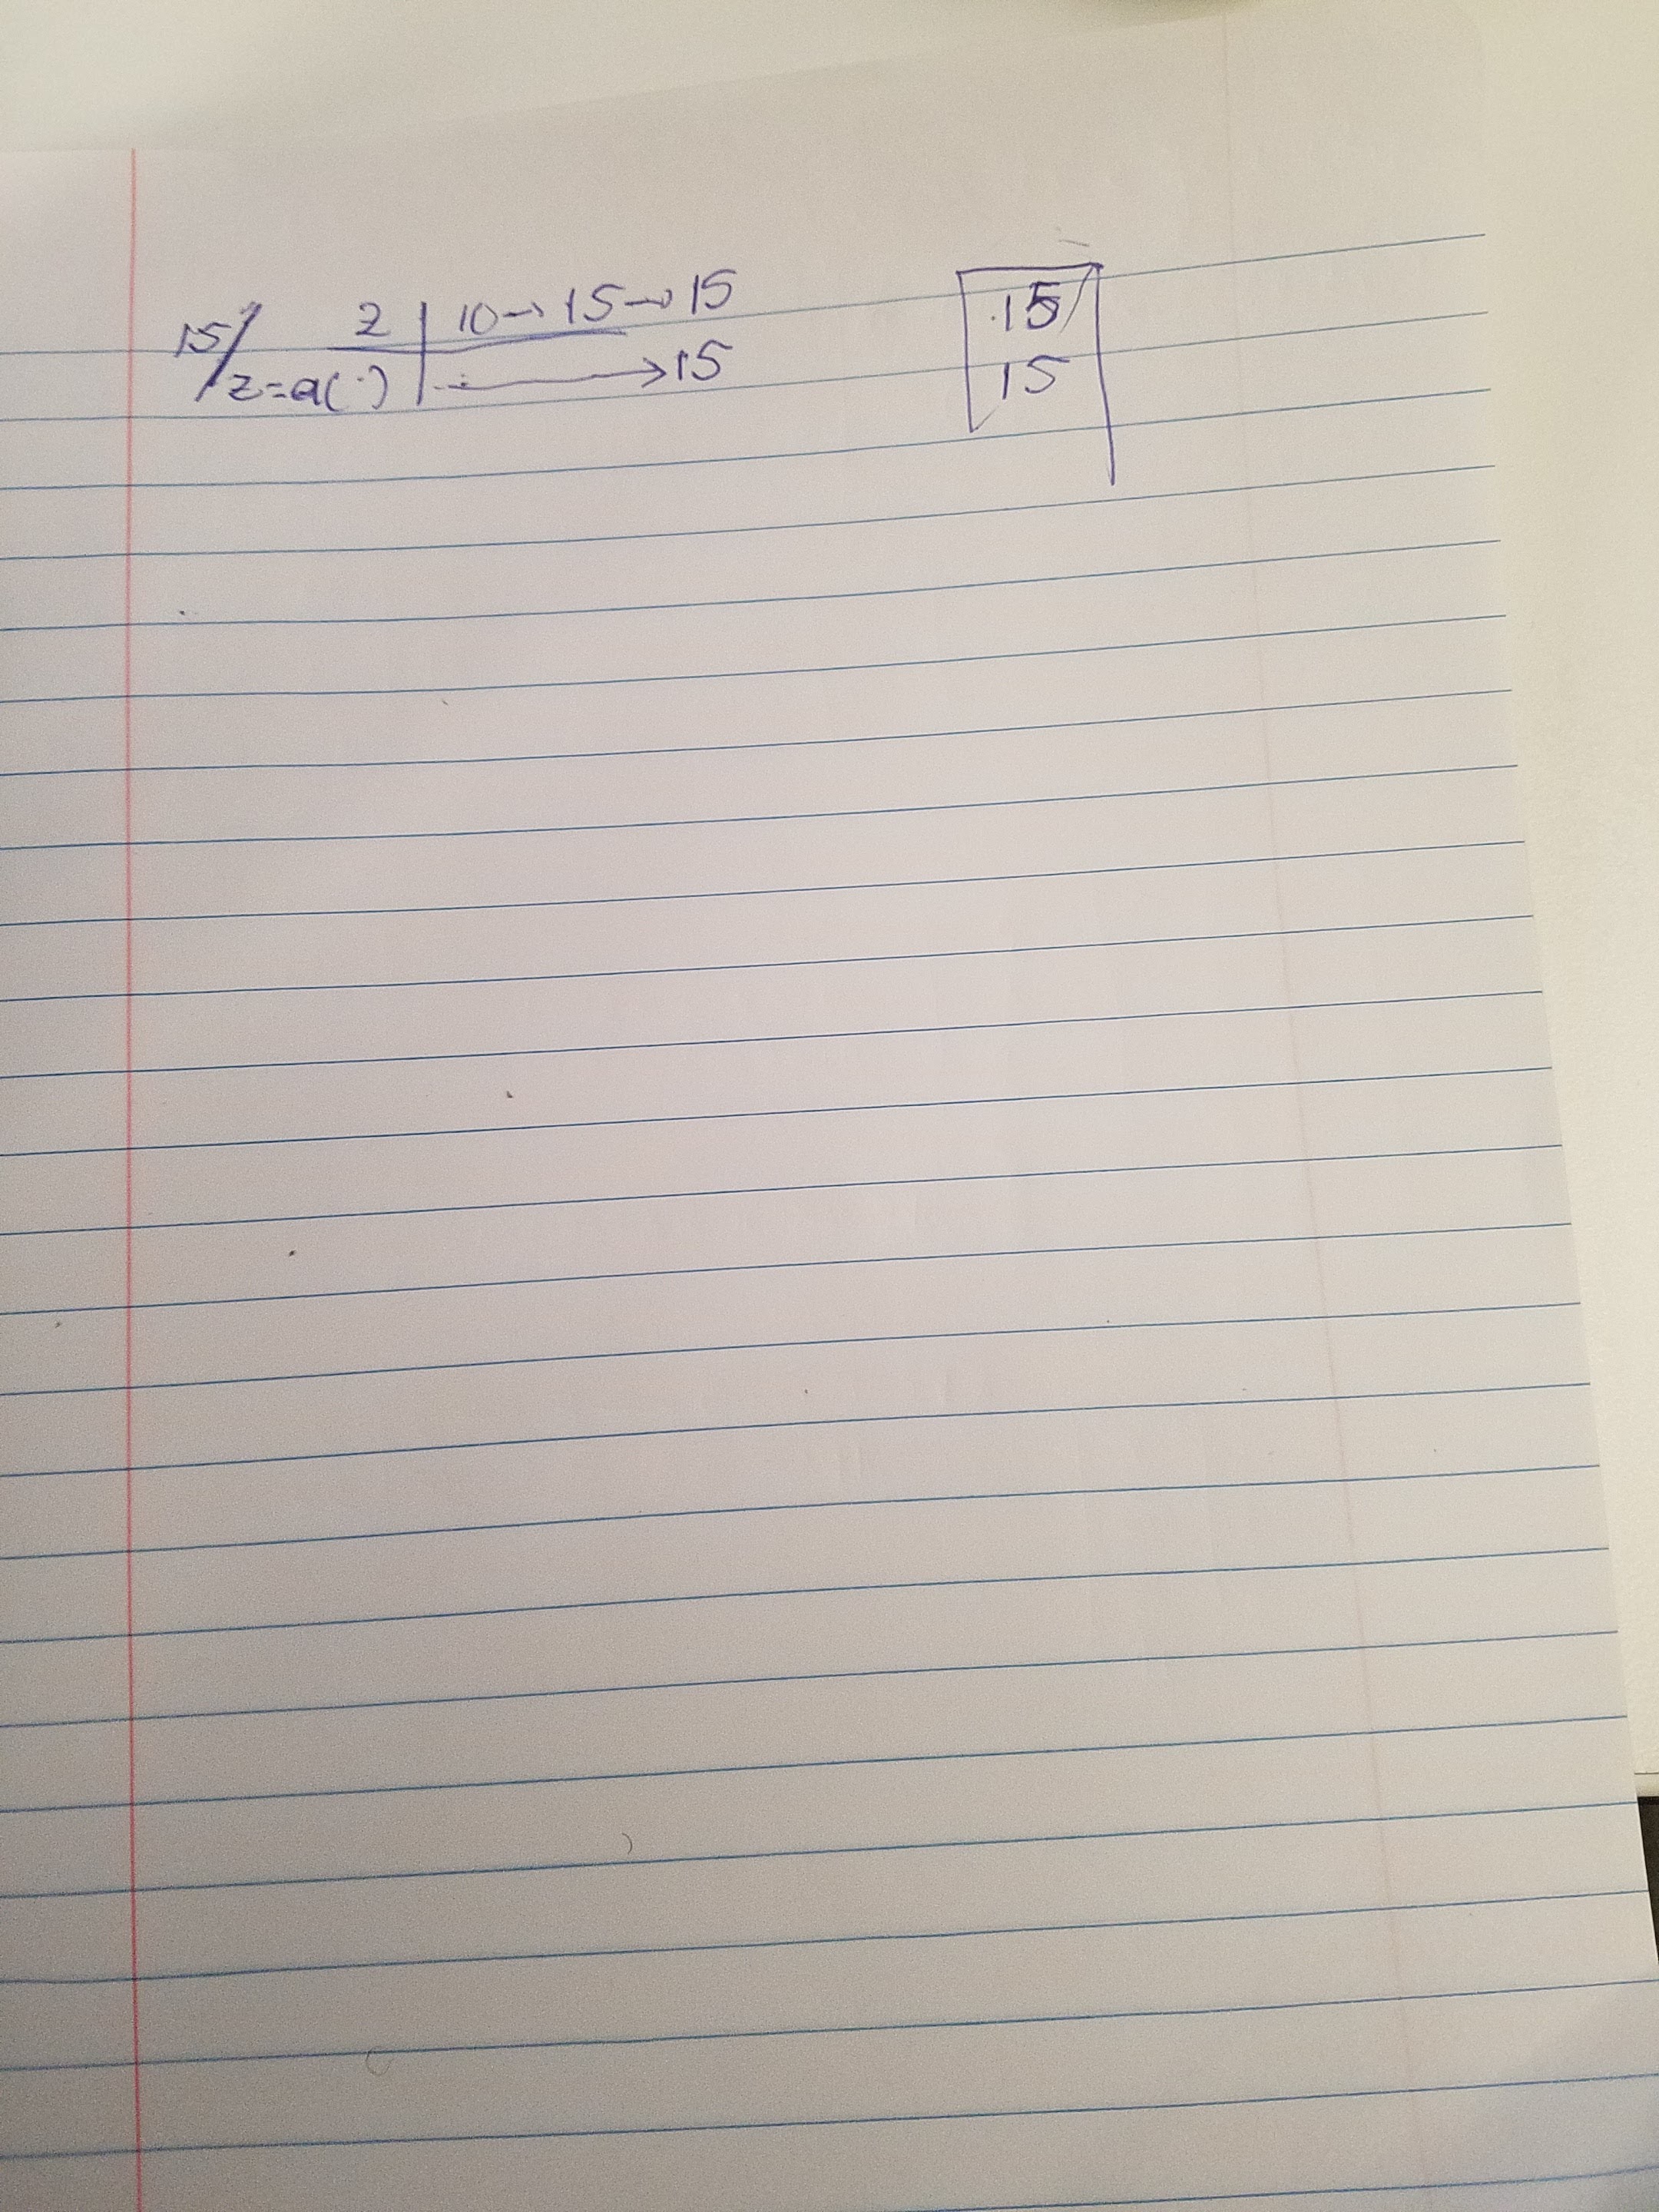 15/ z | 10→15→15
z=a(·) | → 15
15
15